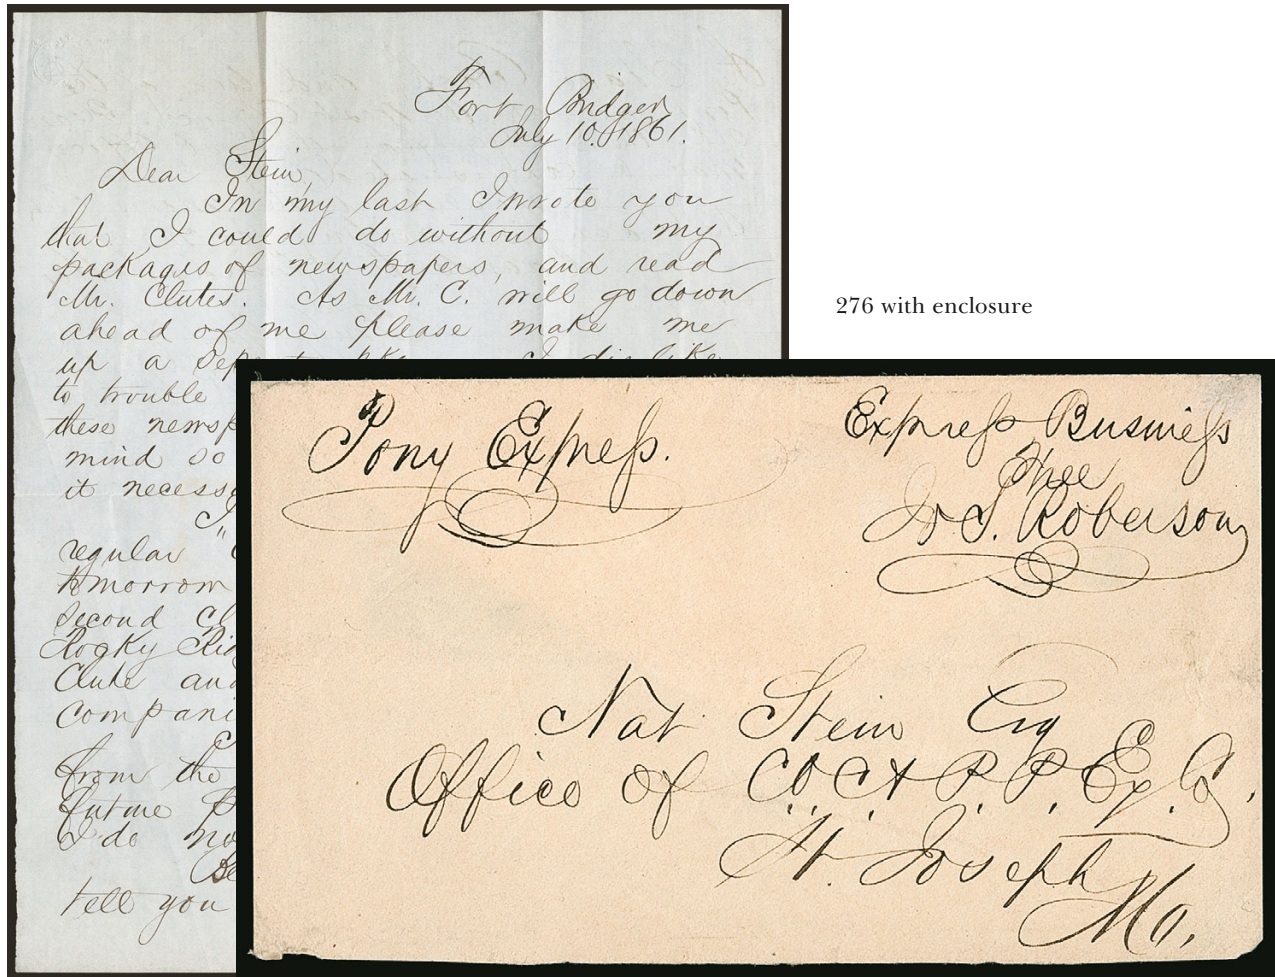 Fort Bridger
July 10. 1861.
Dear Stein,
In my last I wrote you
that I could do without my
packages of newspapers, and read
Mr. Clutes. As Mr. C. will go down
ahead of me please make me
up a I dislike
to trouble
these newsp
mind so
it necess
regular "
tomorrow
second Cl
Rocky Rid
Clute and
compani
from the
future P
I do no
Be
tell you
276 with enclosure
Pony Express.
Express Business
Free
Jos. Roberson
Nat Stein Esq
Office of C.O.C. & P. P. Ex. Co.
St. Joseph
Mo.